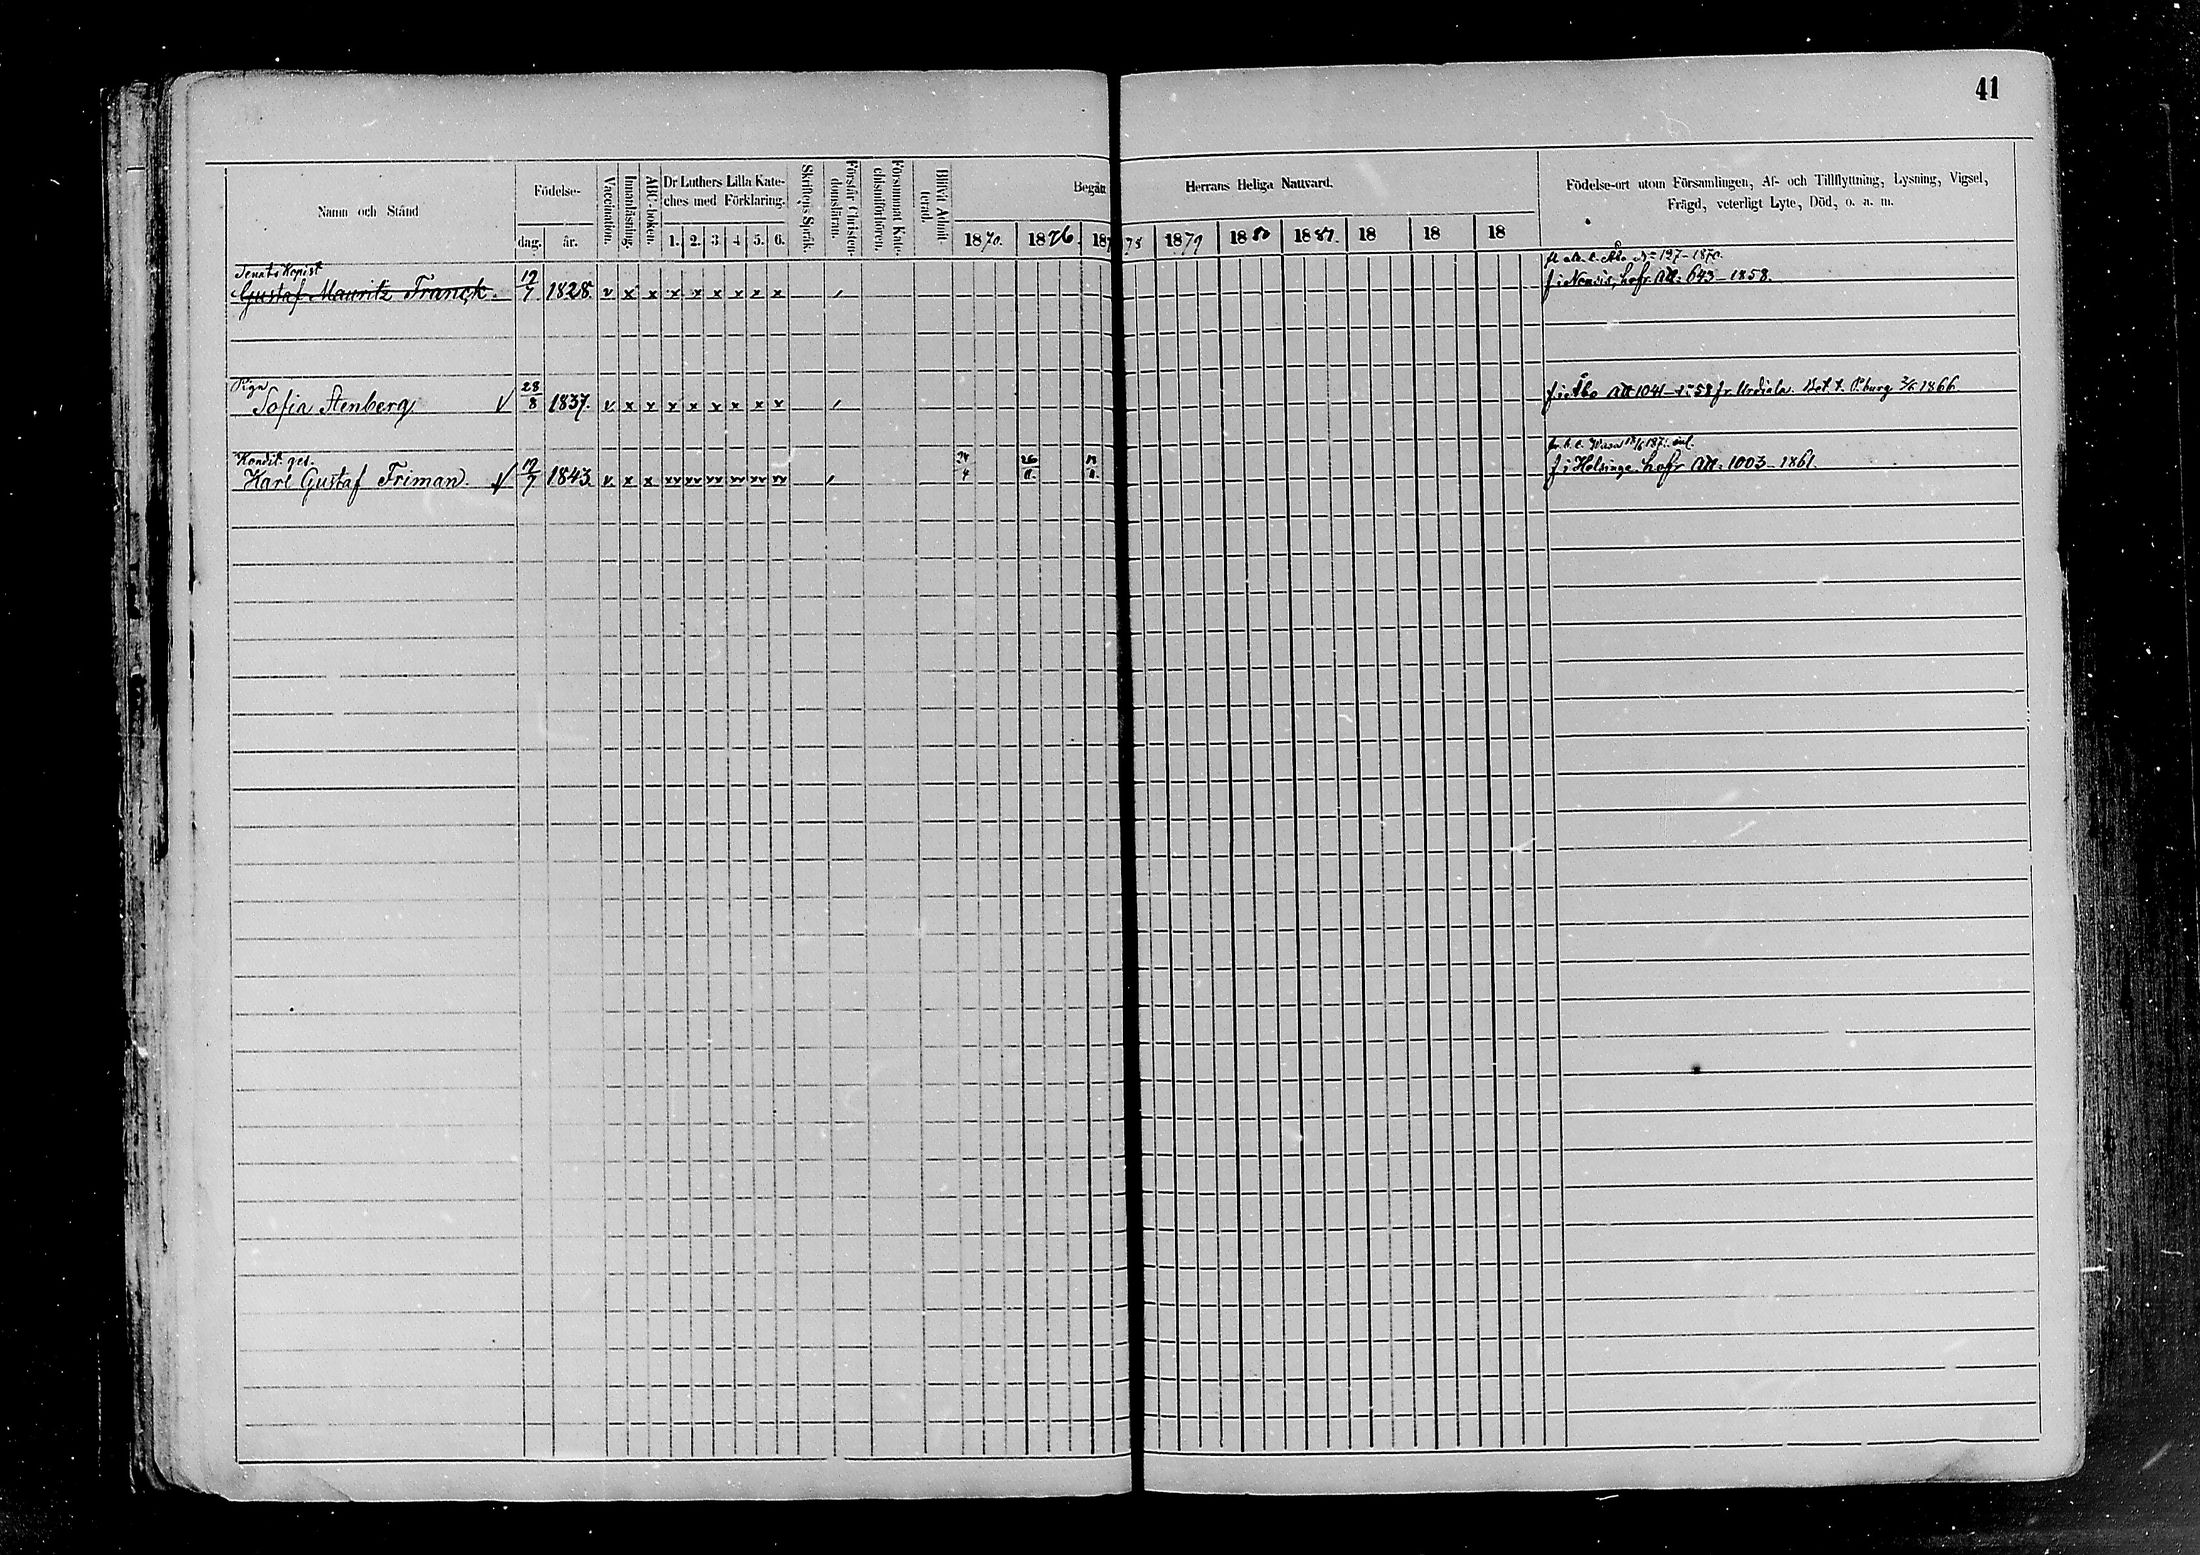 41
Namn och Stånd
Födelse-
dag. år.
Vaccination.
Innanläsning.
ABC-boken.
Dr Luthers Lilla Kate-
ches med Förklaring.
1. 2. 3 4 5. 6.
Skriftens Språk.
Förstår Christen-
domsläran.
Försummat Kate-
chismiförhören.
Blifvit Admit-
terad.
Begått Herrans Heliga Nattvard.
1870. 1876. 187 78 1879 1880 1881. 18 18 18
Födelse-ort utom Församlingen, Af- och Tillflyttning, Lysning, Vigsel,
Frägd, veterligt Lyte, Död, o. a. m.
Senats Kopist Åbo No 127-1870.
Gustaf Mauritz Franck. 19/7 1828. v x x x x x x x x f. i Nousis, hofr. Att: 643-1858.
Pign
Sofia Stenberg 28/8 1837. v x x x x x x x x f. i Åbo Att 1041 58 fr. Urdiala. Bet. t. P.burg 1866
Kondit. ges. Wasa
Karl Gustaf Friman. 19/7 1843. v x x xx xx xx xx xx xx 24/4 26/11. f. i Helsinge hofr Att: 1003-1861